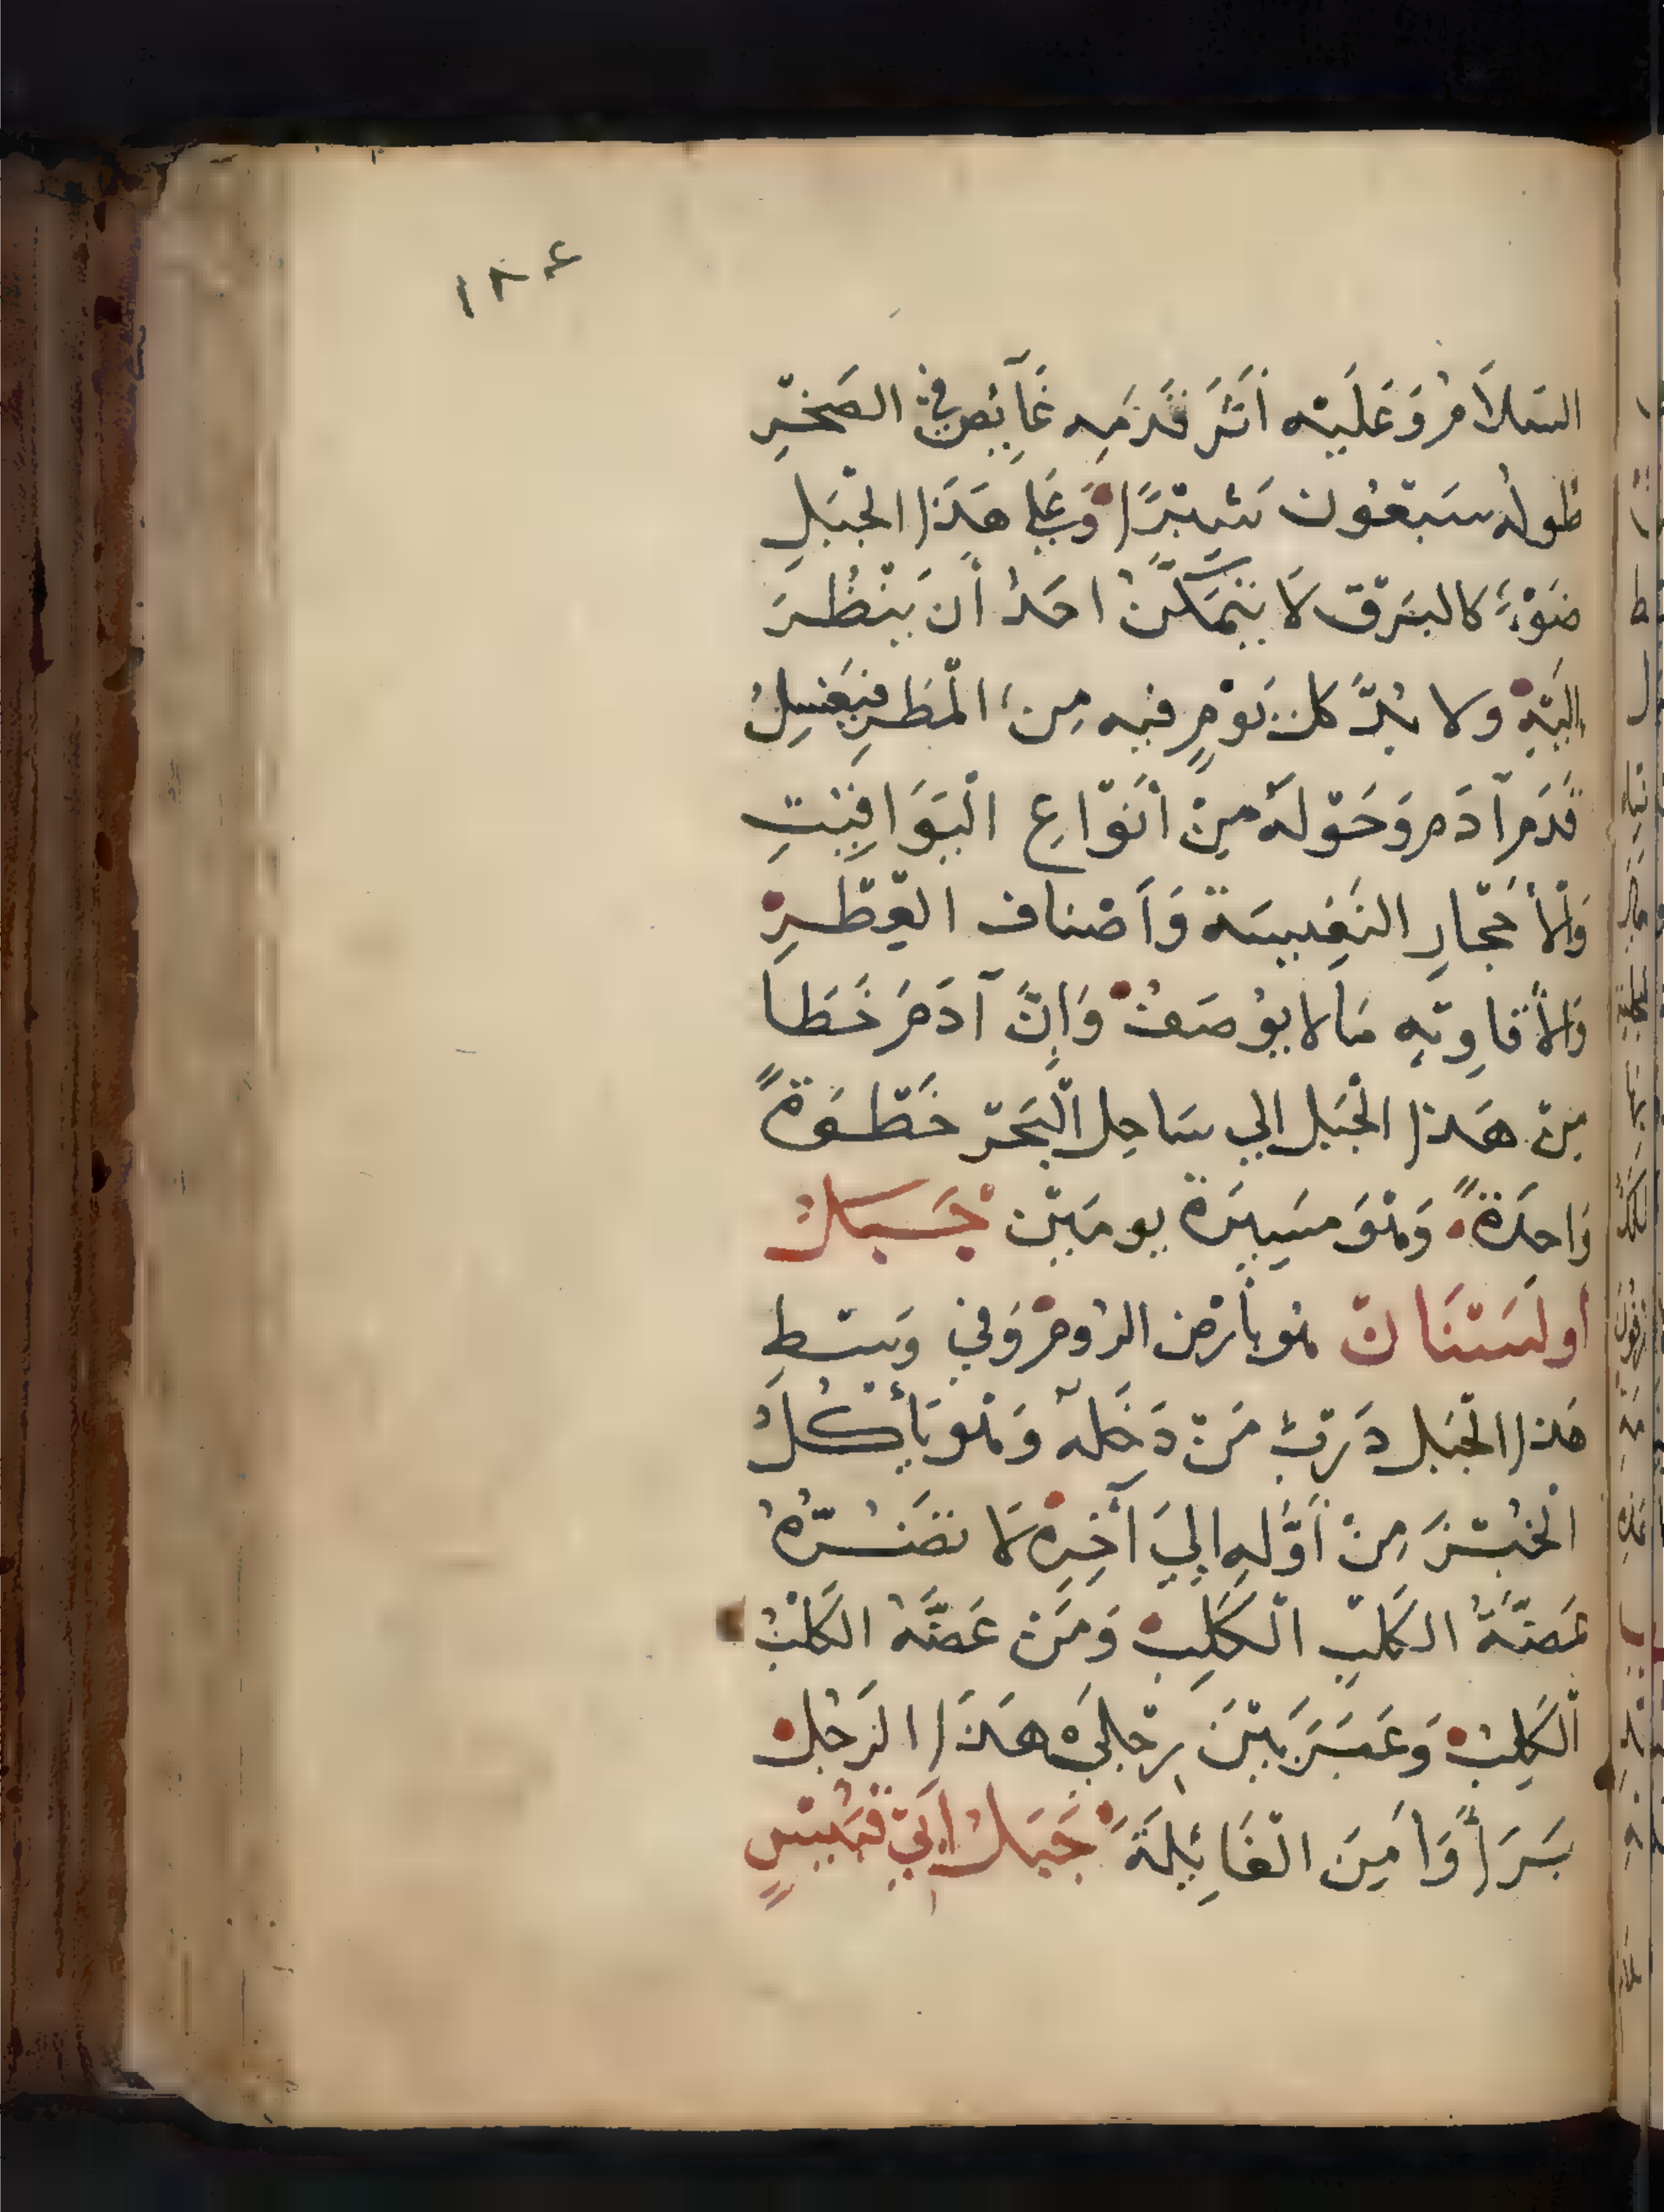 ١٨٤
السَلَامُ وَعَلَيْه أَثَرَ قَدَمِه غَآيِصٌ فِي الصَخْرِ
طُولُه سَبْعُون شَبْرًا وَعَلي هَذَا الجْبَلِ
ضَوْءٌ كالبَرْق لَا يَتَمَكَّنُ احَدٌ أن يَنْظُرَ
اليَهِ ولا بُدَّ كل يَوْمٍ فيه مِن الْمَطَرِ فيَغْسِلُ
قَدَمِ آدَمَ وَحَوْلَهُ مِنْ أنْوَاعِ الْيَوَاقِيْتِ
وَالْأَحْجَارِ النَفِيسَة وَأَصْنَاف العِطْرِ
وَالأَفاوِيَهِ مَالا يُوْصَفُ وَإنَّ آدَمَ خَطَا
مِنْ هَذا الْجَبَلِ الي سَاحِلِ الْبَحْرِ خَطْوَةً
وَاحِدَةً وَهُوَ مَسِيرَة يومَيْن جَبَلُ
أولَسْتَان هُو بأرْضِ الرُومِ وَفي وَسْطِ
هَذا الْجَبَلِ دَرْبٌ مَنْ دَخَلَهُ وَهُو يَأْكُلُ
الْخُبْزَ مِنْ أَوَّلِهِ إلِيَ آخِرِهْ لَا تضُرُّهُ
عَضَّةُ الكَلْبِ الْكَلِبِ وَمَنْ عَضَّهُ الكَلْبُ
الْكَلِبُ وَعَبَرَ بَيْنَ رِجْلَيْ هَذَا الرَجُلِ
بَرَأَ وَأَمِنَ الْغَائِلَةَ جَبَلُ أَبي قُبَيْسٍ